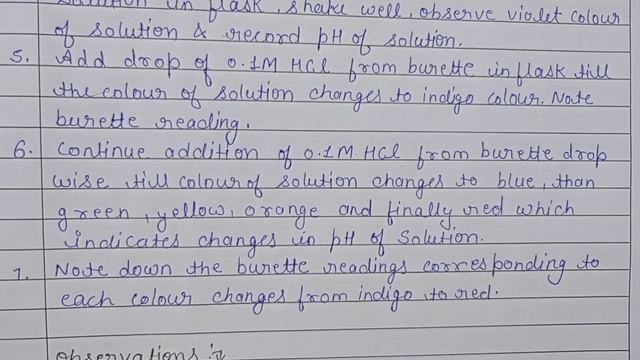 solution in flask, shake well, observe violet colour
of solution & record pH of solution.
5. Add drop of 0.1M HCl from burette in flask till
the colour of solution changes to indigo colour. Note
burette reading.
6. Continue addition of 0.1M HCl from burette drop
wise till colour of solution changes to blue, than
green, yellow, orange and finally red which
indicates changes in pH of Solution.
7. Note down the burette readings corresponding to
each colour changes from indigo to red.
Observations :-